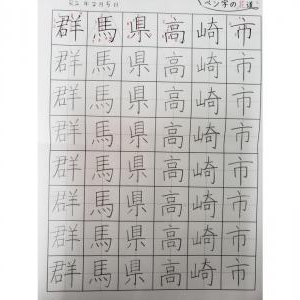 ペン字の
群馬県高崎市
群馬県高崎市
群馬県高崎市
群馬県高崎市
群馬県高崎市
群馬県高崎市
群馬県高崎市
群馬県高崎市